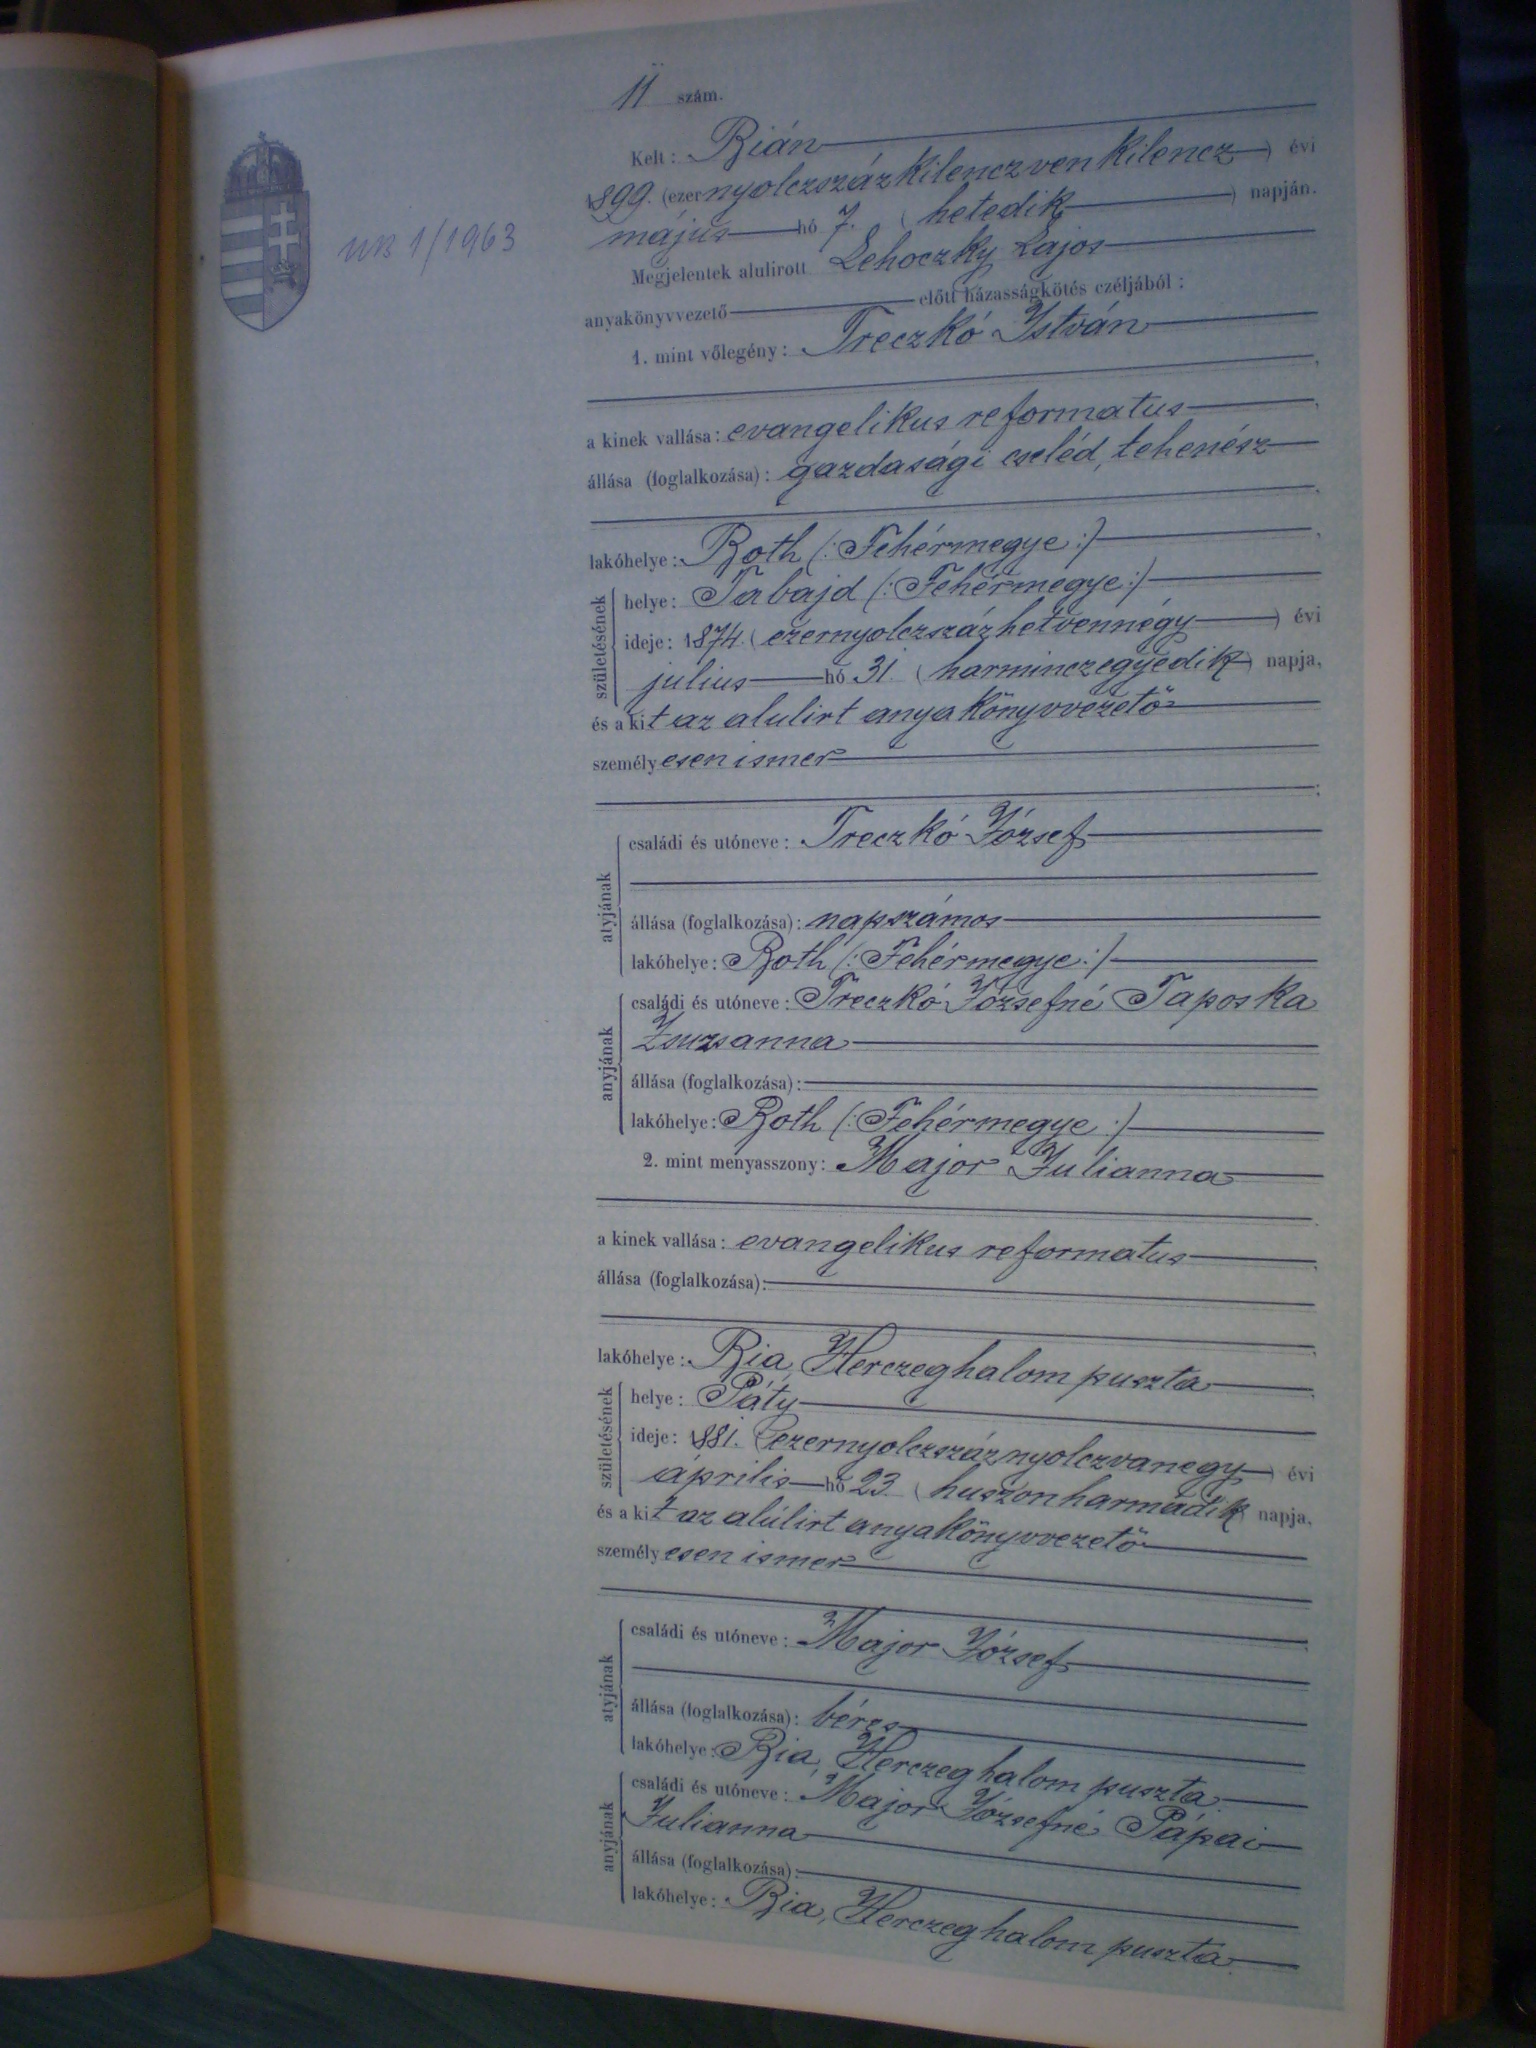 11 szám.
Kelt: Bián
1899. (ezernyolczszázkilenczvenkilencz) évi
május hó 7. (hetedik) napján.
Megjelentek alulirott Lehoczky Lajos
anyakönyvvezető előtt házasságkötés czéljából:
1/1963
1. mint vőlegény: Treczkó István
a kinek vallása: evangelikus reformatus,
állása (foglalkozása): gazdasági cseléd, tehenész
lakóhelye: Both (: Fehérmegye :),
születésének
helye: Tabajd (: Fehérmegye :)
ideje: 1874. (ezernyolczszázhetvennégy) évi
julius hó 31 (harminczegyedik) napja,
és a kit az alulirt anyakönyvvezető
személyesen ismer
;
atyjának
családi és utóneve: Treczkó József
állása (foglalkozása): napszámos
lakóhelye: Both (: Fehérmegye :)
anyjának
családi és utóneve: Treczkó Józsefné Taposka
Zsuzsanna
állása (foglalkozása):
lakóhelye: Both (: Fehérmegye :)
2. mint menyasszony: Major Julianna
a kinek vallása: evangelikus reformatus,
állása (foglalkozása):
lakóhelye: Bia, Herczeghalom puszta
születésének
helye: Páty
ideje: 1881. (ezernyolczszáznyolczvanegy) évi
április hó 23 (huszonharmadik) napja,
és a kit az alúlirt anyakönyvvezető
személyesen ismer
atyjának
családi és utóneve: Major József
állása (foglalkozása): béres
lakóhelye: Bia, Herczeghalom puszta
anyjának
családi és utóneve: Major Józsefné Pápai
Julianna
állása (foglalkozása):
lakóhelye: Bia, Herczeghalom puszta